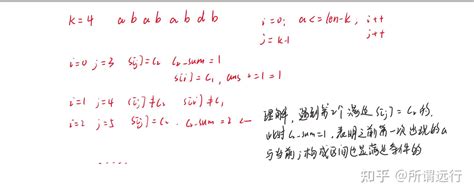 k=4 a b a b a b d b
i=0; a<=len-k, i++
j=k-1 j++
i=0 j=3 s[j]=c₂ c₂_sum=1
s[i]=c₁, ans+=1=1
i=1 j=4 s[j]≠c₂ s[i]≠c₁
i=2 j=5 s[j]=c₂. c₂_sum=2
理解,遇到第2个满足s[j]=c₂的,
此时c₂_sum=1,表明之前第一次出现的a
与当前j构成区间也是满足条件的
......
知乎 @所谓远行